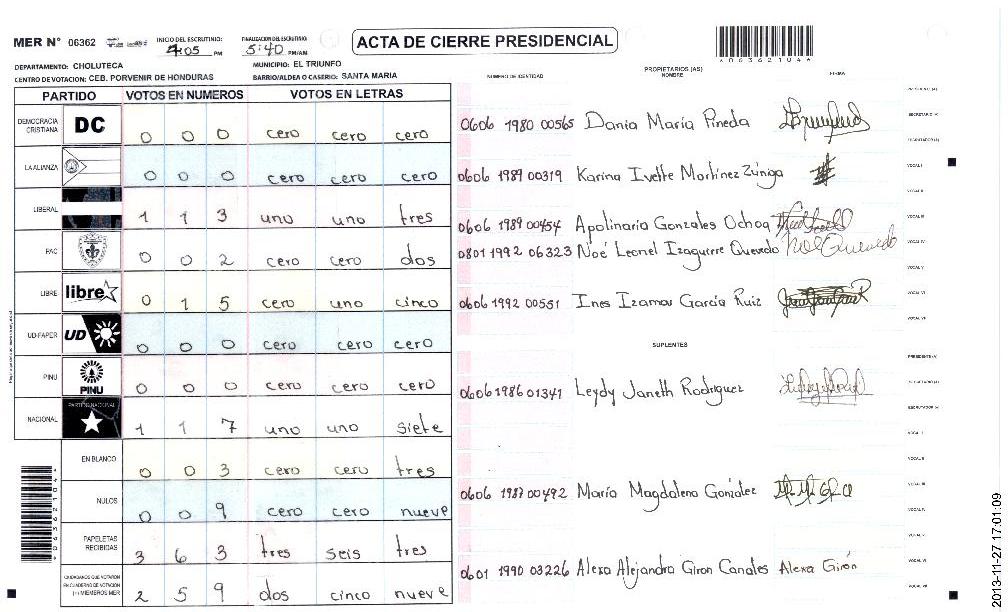 MER N° 06362
INICIO DEL ESCRUTINIO: 4:05 PM
FINALIZACION DEL ESCRUTINIO: 5:40 PM/AM
ACTA DE CIERRE PRESIDENCIAL
DEPARTAMENTO: CHOLUTECA
MUNICIPIO: EL TRIUNFO
CENTRO DE VOTACION: CEB. PORVENIR DE HONDURAS
BARRIO/ALDEA O CASERIO: SANTA MARIA
NUMERO DE IDENTIDAD
PROPIETARIOS (AS)
NOMBRE
FIRMA
PARTIDO VOTOS EN NUMEROS VOTOS EN LETRAS
DEMOCRACIA CRISTIANA DC 0 0 0 cero cero cero
LA ALIANZA 0 0 0 cero cero cero
LIBERAL 1 1 3 uno uno tres
PAC 0 0 2 cero cero dos
LIBRE libre 0 1 5 cero uno cinco
UD-FAPER UD 0 0 0 cero cero cero
PINU PINU 0 0 0 cero cero cero
NACIONAL PARTIDO NACIONAL 1 1 7 uno uno siete
EN BLANCO 0 0 3 cero cero tres
NULOS 0 0 9 cero cero nueve
PAPELETAS RECIBIDAS 3 6 3 tres seis tres
CIUDADANOS QUE VOTARON EN CUADERNO DE VOTACION (+) MIEMBROS MER 2 5 9 dos cinco nueve
0606 1980 00565 Dania María Pineda
0606 1989 00319 Karina Ivette Martínez Zúniga
0606 1989 00454 Apolinario Gonzales Ochoa
0801 1992 06323 Noé Leonel Izaguirre Quevedo
0606 1992 00551 Ines Izamar García Ruiz
SUPLENTES
0606 1986 01341 Leydy Janeth Rodriguez
0606 1987 00492 María Magdalena González
0601 1990 03226 Alexa Alejandra Giron Canales Alexa Girón
2013-11-27 17:01:09